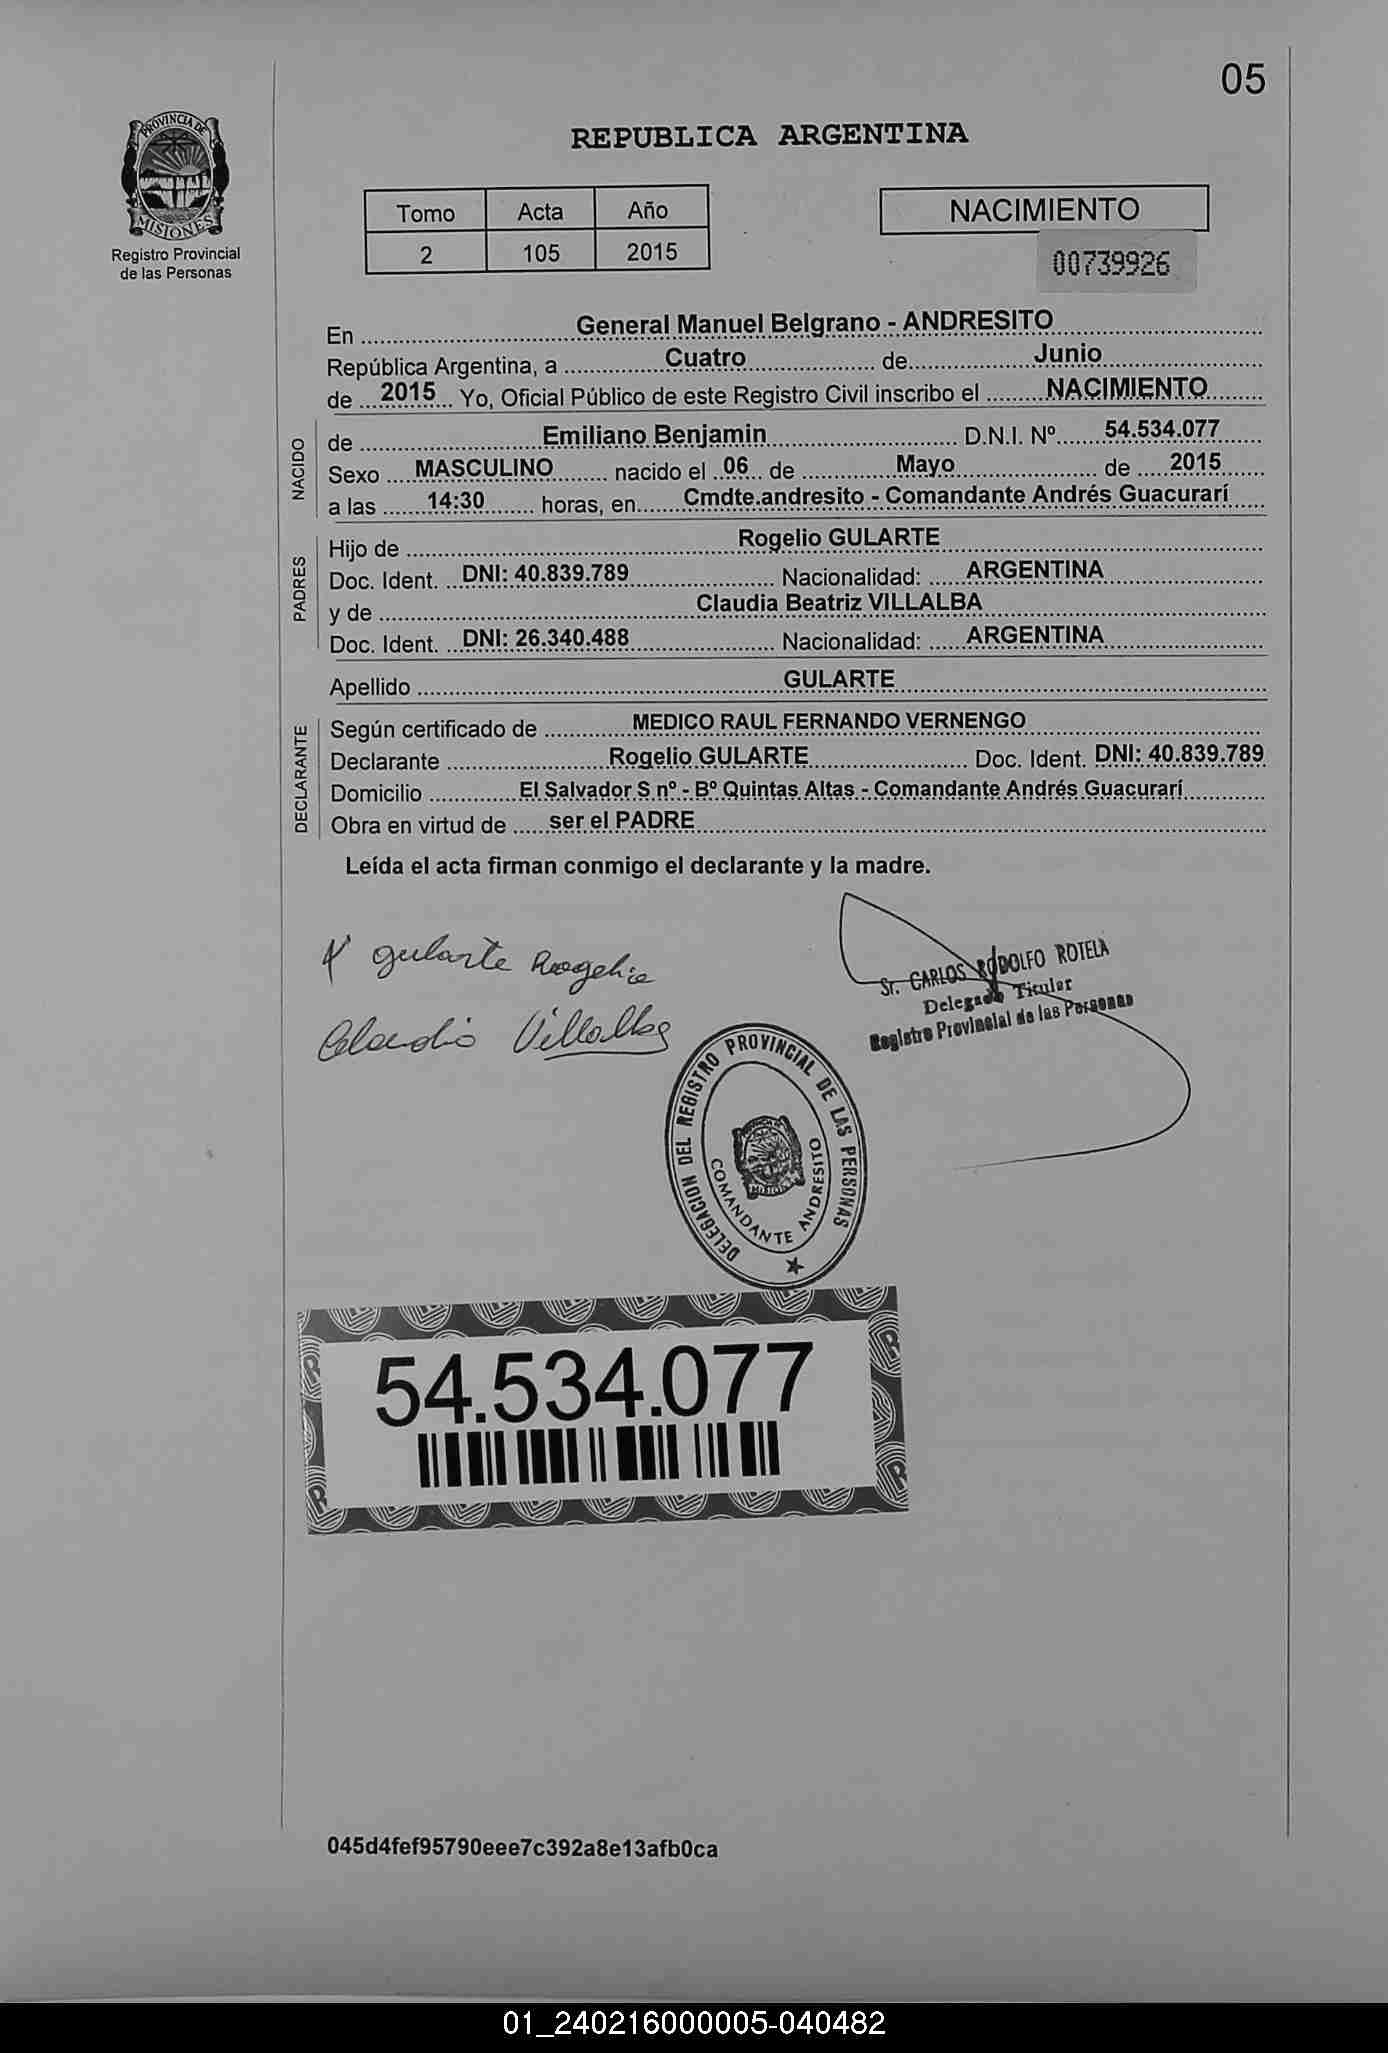 05
PROVINCIA DE
MISIONES
Registro Provincial
de las Personas
REPUBLICA ARGENTINA
Tomo Acta Año
2 105 2015
NACIMIENTO
00739926
En General Manuel Belgrano - ANDRESITO
República Argentina, a Cuatro de Junio
de 2015 Yo, Oficial Público de este Registro Civil inscribo el NACIMIENTO
NACIDO
de Emiliano Benjamin D.N.I. Nº 54.534.077
Sexo MASCULINO nacido el 06 de Mayo de 2015
a las 14:30 horas, en Cmdte.andresito - Comandante Andrés Guacurarí
PADRES
Hijo de Rogelio GULARTE
Doc. Ident. DNI: 40.839.789 Nacionalidad: ARGENTINA
y de Claudia Beatriz VILLALBA
Doc. Ident. DNI: 26.340.488 Nacionalidad: ARGENTINA
Apellido GULARTE
DECLARANTE
Según certificado de MEDICO RAUL FERNANDO VERNENGO
Declarante Rogelio GULARTE Doc. Ident. DNI: 40.839.789
Domicilio El Salvador S nº - Bº Quintas Altas - Comandante Andrés Guacurarí
Obra en virtud de ser el PADRE
Leída el acta firman conmigo el declarante y la madre.
gularte Rogelio
Claudia Villalba
Sr. CARLOS RODOLFO ROTELA
Delegado Titular
Registro Provincial de las Personas
DELEGACION DEL REGISTRO PROVINCIAL DE LAS PERSONAS
COMANDANTE ANDRESITO
54.534.077
045d4fef95790eee7c392a8e13afb0ca
01_240216000005-040482